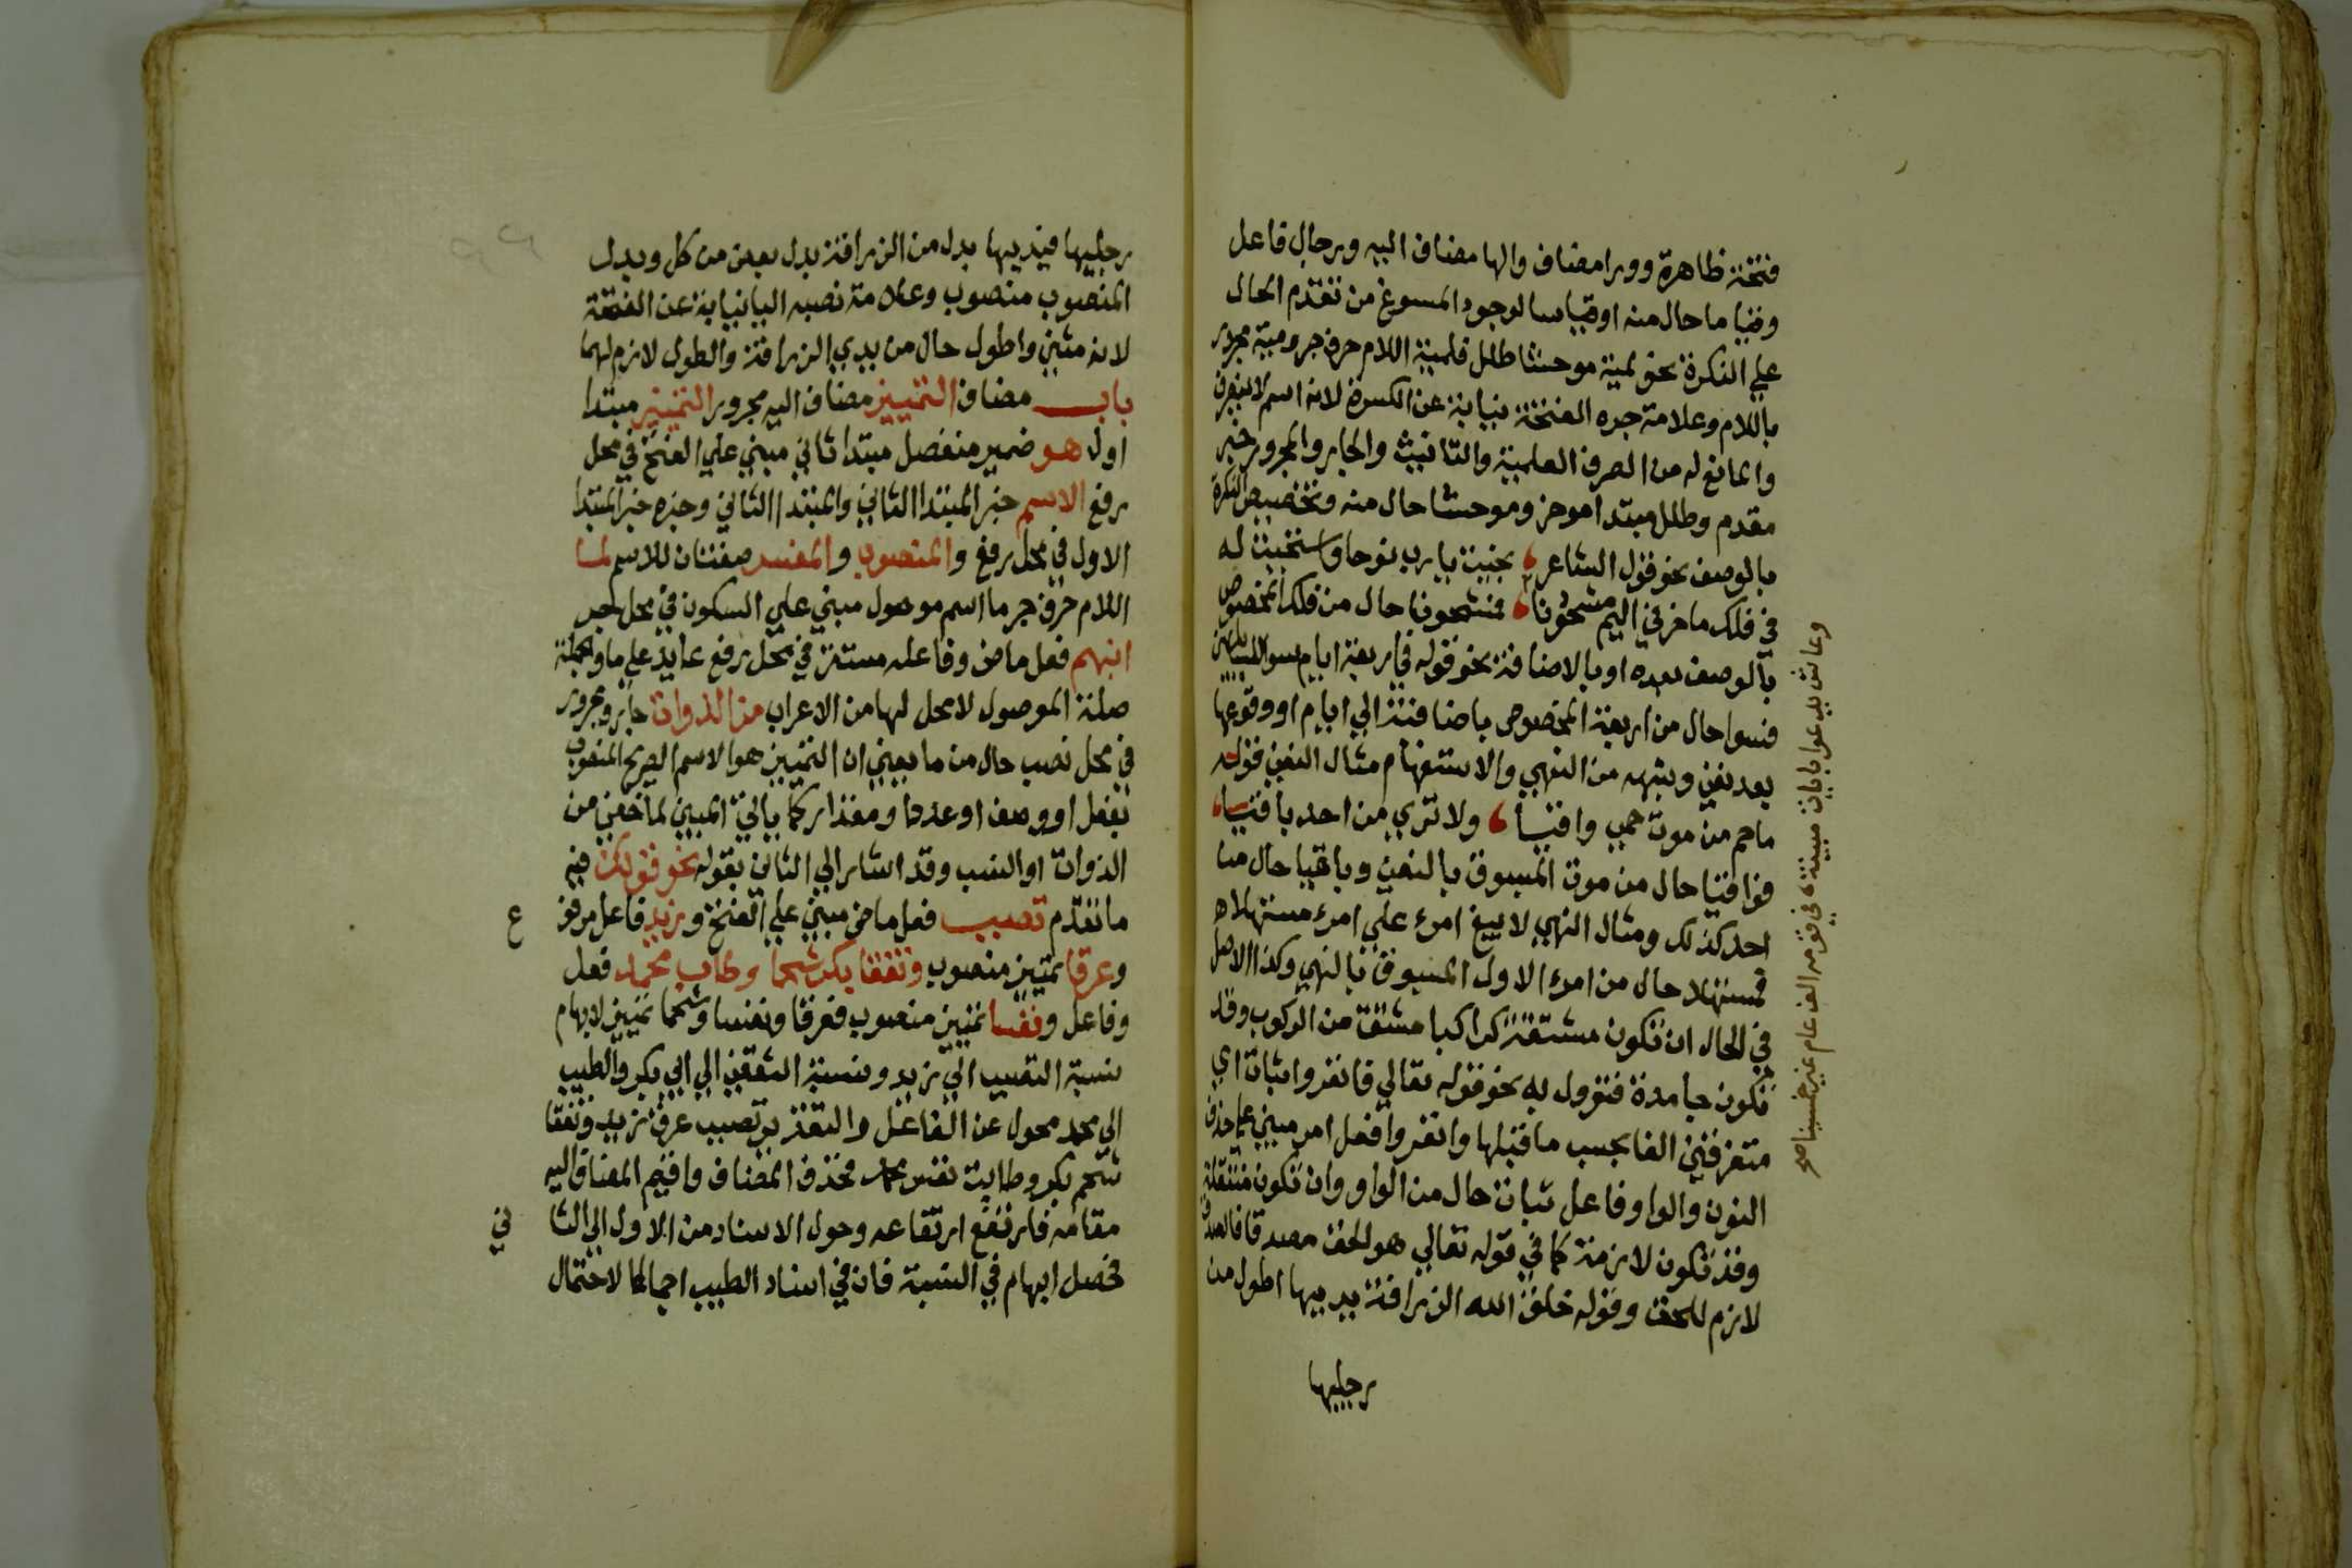 فتحة ظاهرة وورا مضاف والها مضاف اليه ورجال فاعل
وقياما حال منه او قياسا لوجود المسوغ من تقدم الحال
علي النكرة نحو لمية موحشا طلل فلمية اللام حرف جر ومية مجرور
باللام وعلامة جره الفتحة نيابة عن الكسرة لانه اسم لا ينصرف
والمانع له من الصرف العلمية والتانيث والجار والمجرور خبر
مقدم وطلل مبتدا موخر وموحشا حال منه وتخصيص النكرة
بالوصف نحو قول الشاعر نجيت يا رب نوحا واستجبت له
في فلك ماخر في اليم مشحونا فمشحونا حال من فلك المخصوص
بالوصف بعده او بالاضافة نحو قوله في اربعة ايام سوا للسايلين
فسوا حال من اربعة المخصوص باضافته الي ايام او وقوعها
بعد نفي وشبهه من النهي والاستفهام مثال النفي قوله
ماحم من موت حمي واقيا ولا تري من احد باقيا
فواقيا حال من موت المسبوق بالنفي وباقيا حال من
احد كذلك ومثال النهي لا يبغ امرء علي امرء مستهلا
فمستهلا حال من امرء الاول المسبوق بالنهي وكذا الاصل
في الحال ان تكون مشتقة كراكبا مشتق من الركوب وقد
تكون جامدة فتوول به نحو قوله تعالي فانفروا ثبات اي
متفرقين الفا بحسب ما قبلها وانفروا فعل امر مبني علي حذف
النون والواو فاعل ثبات حال من الواو وان تكون منتقلة
وقد تكون لازمة كما في قوله تعالي هو الحق مصدقا فالصدق
لازم للحق وقوله خلق الله الزرافة يديها اطول من
رجليها
وعاش يدعوا بايات مبينة في قومه الف عام غير خمسينا صح
رجليها فيديها بدل من الزرافة بدل بعض من كل وبدل
المنصوب منصوب وعلامة نصبه اليا نيابة عن الفتحة
لانه مثني واطول حال من يدي الزرافة والطول لازم لهما
باب مضاف التمييز مضاف اليه مجرور التمييز مبتدا
اول هو ضمير منفصل مبتدا ثاني مبني علي الفتح في محل
رفع الاسم خبر المبتدا الثاني والمبتدا الثاني وخبره خبر المبتدا
الاول في محل رفع والمنصوب والمفسر صفتان للاسم لما
اللام حرف جر ما اسم موصول مبني علي السكون في محل جر
انبهم فعل ماض وفاعله مستتر في محل رفع عايد علي ما والجملة
صلة الموصول لا محل لها من الاعراب من الذوات جار ومجرور
في محل نصب حال من ما يعني ان التمييز هو الاسم الصريح المنصوب
بفعل او وصف او عدد او مقدار كما ياتي المبين لما خفي من
الذوات او النسب وقد اشار الي الثاني بقوله نحو قولك فيه
ما تقدم تصبب فعل ماض مبني علي الفتح وزيد فاعل مرفو
ع
وعرقا تمييز منصوب وتفقا بكر شحما وطاب محمد فعل
وفاعل ونفسا تمييز منصوب فعرقا ونفسا وشحما تمييز لابهام
نسبة التصبب الي زيد ونسبة التفقي الي ابي بكر والطيب
الي محمد محول عن الفاعل والتقدير تصبب عرق زيد وتفقا
شحم بكر وطابت نفس محمد فحذف المضاف واقيم المضاف اليه
مقامه فارتفع ارتفاعه وحول الاسناد من الاول الي الثا
ني
فحصل ابهام في النسبة فان في اسناد الطيب اجمالا لاحتمال